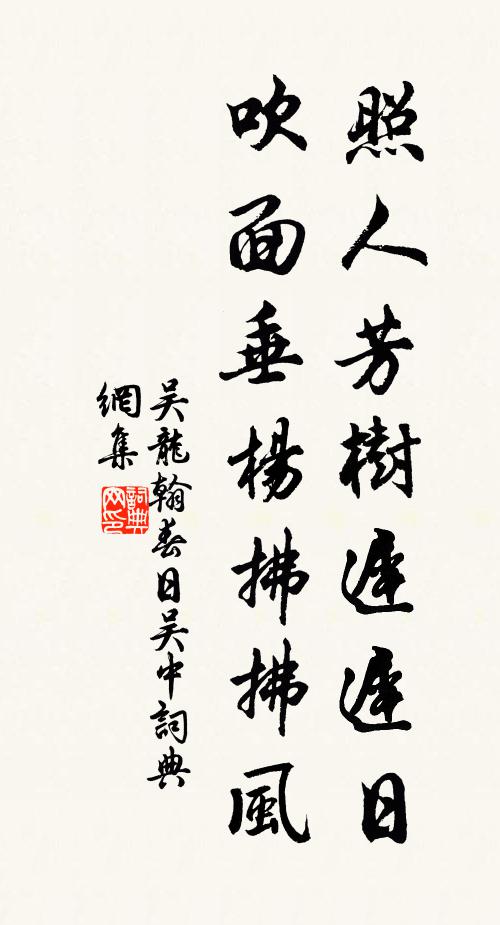 照人芳樹遲遲日
吹面垂楊拂拂風
吴龍翰春日吴中詞典
網集
詞典
网印